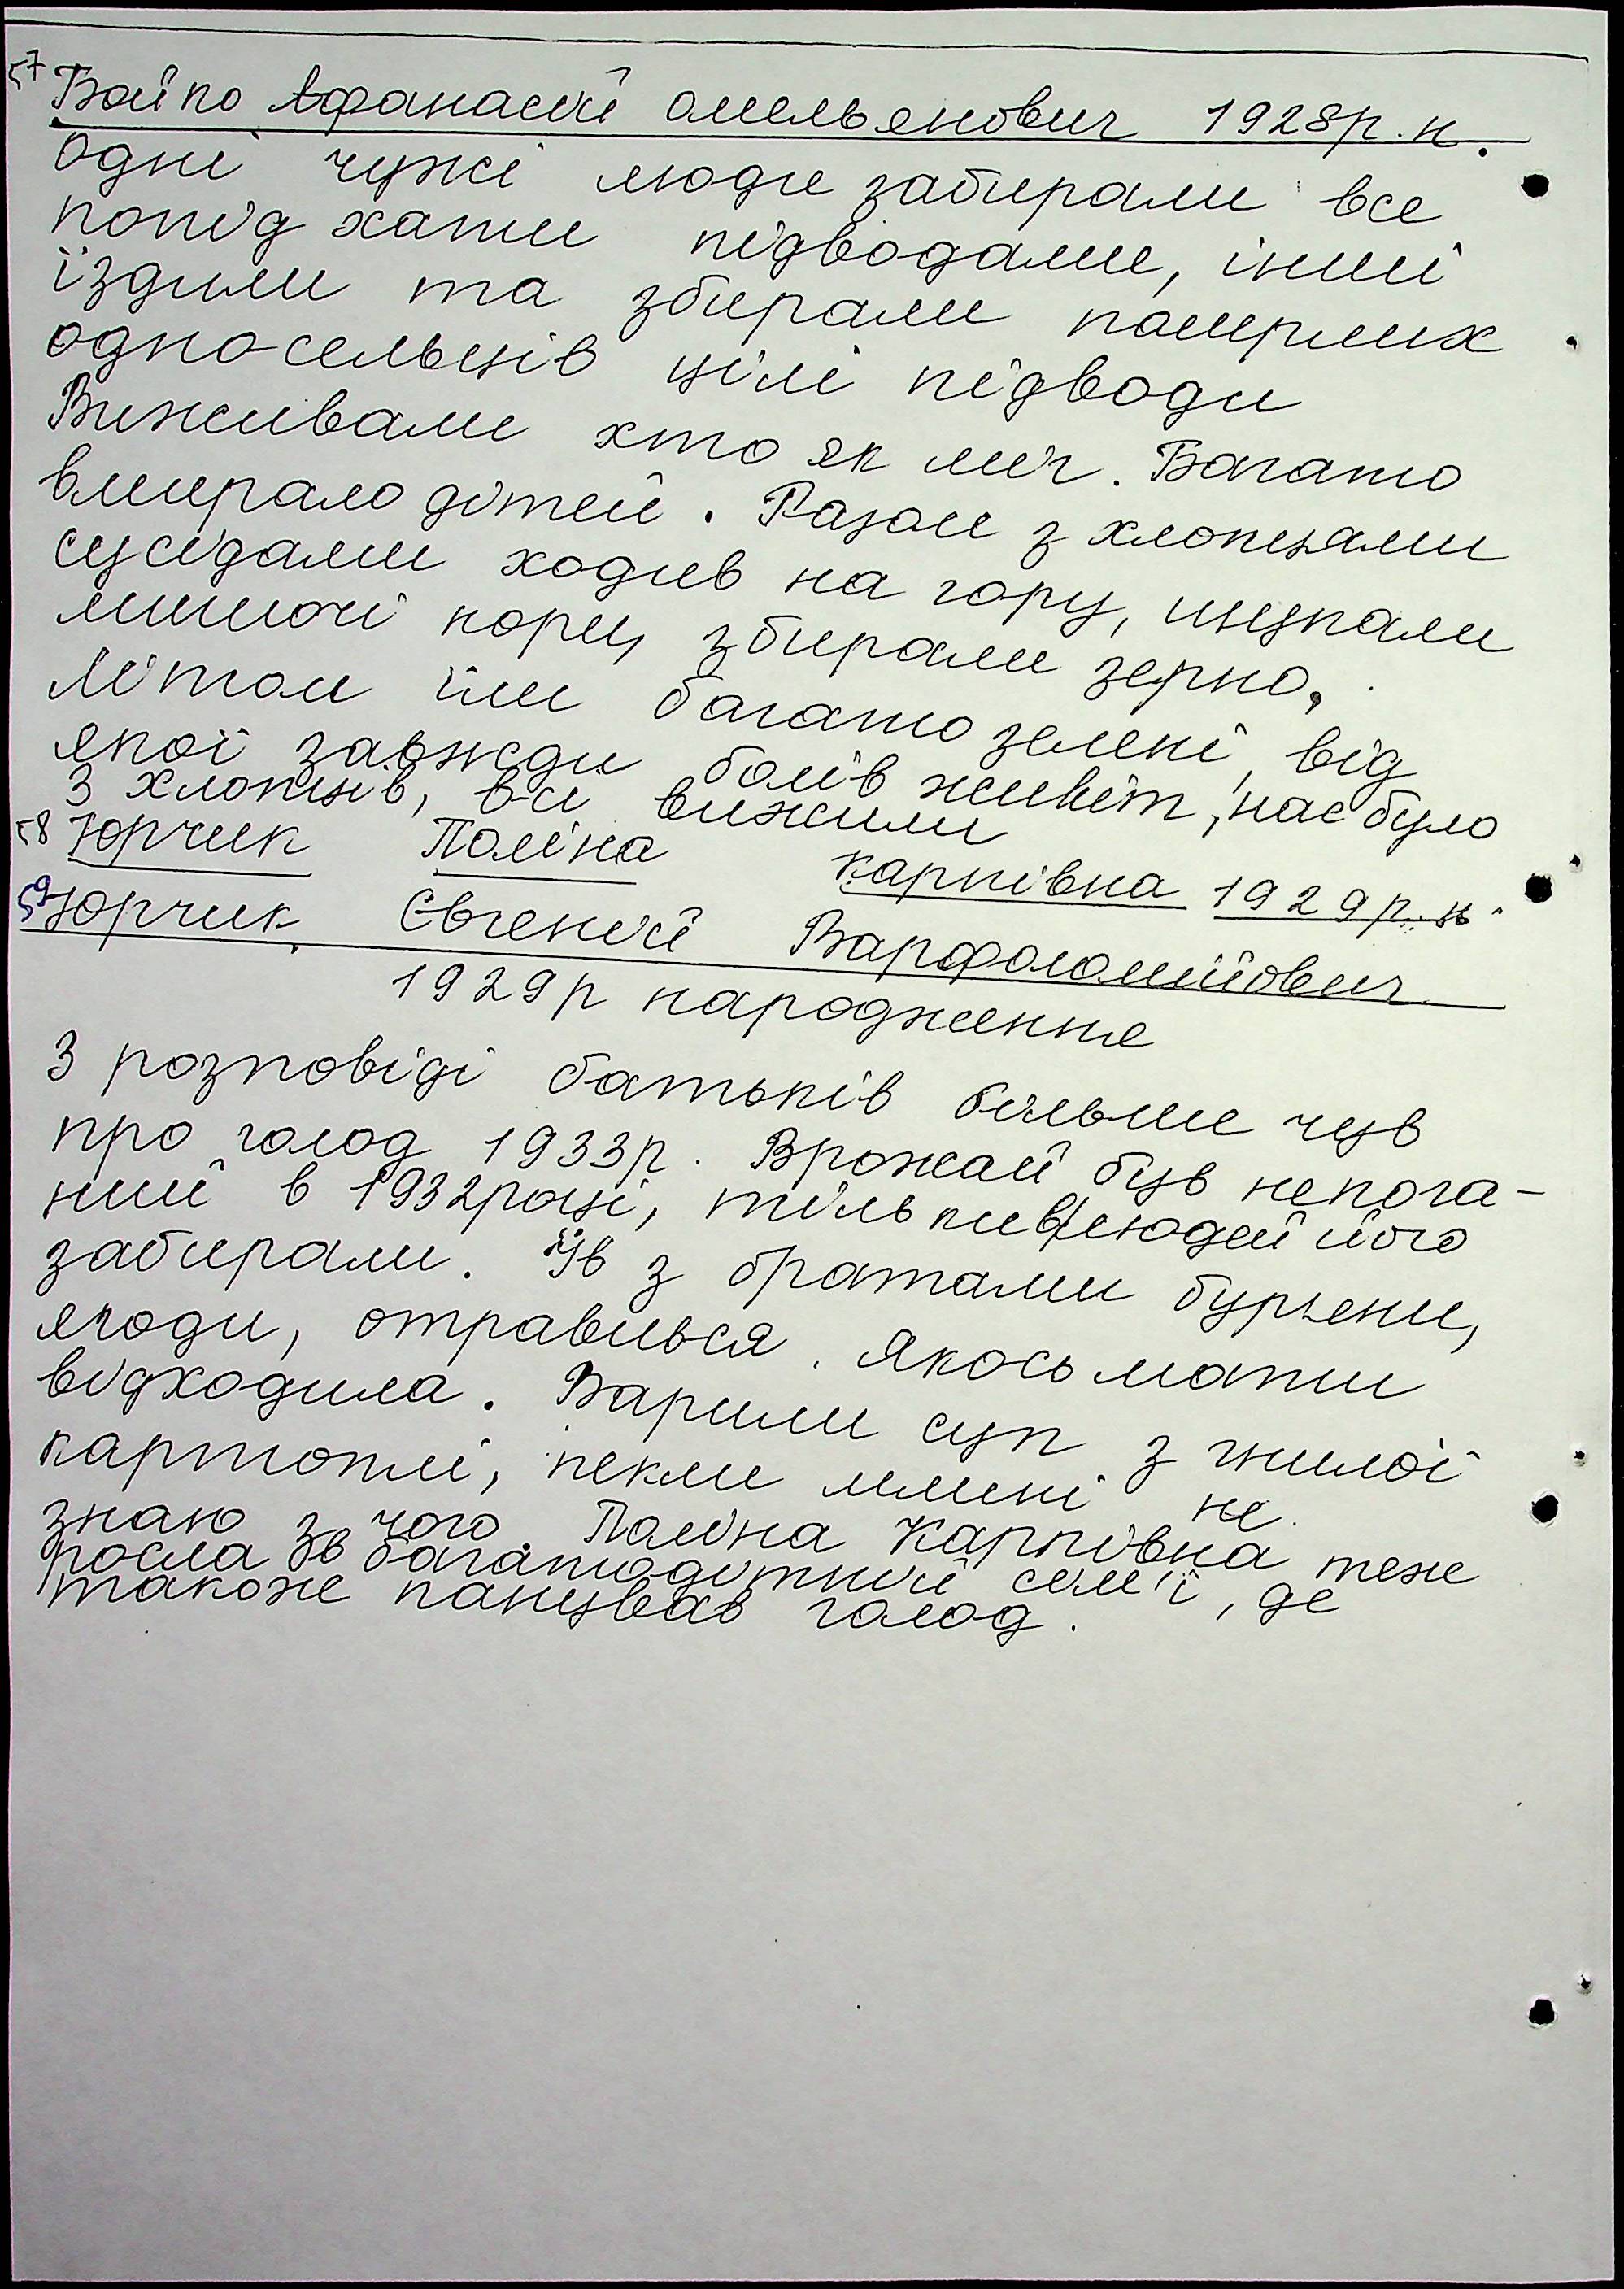 57 Бойко Афанасій Омельянович 1928р.н.
Одні чужі люди забирали все
попід хати підводами, інші
їздили та збирали померлих
односельців цілі підводи
Виживали хто як міг. Багато
вмирало дітей. Разом з хлопцями
сусідами ходив на гору, шукали
мишочі нори, збирали зерно.
Літом їли багато зелені, від
якої завжди болів живіт, нас було
3 хлопців, всі вижили
58 Юрчик Поліна Карпівна 1929р.н.
59 Юрчик Євгеній Варфоломійович
1929р народження
З розповіді батьків більше чув
про голод 1933р. Врожай був непога-
ний в 1932році, тільки в людей його
забирали. Їв з братами бурьяни,
ягоди, отравився. Якось мати
відходила. Варили суп з гнилої
картоплі, пекли млинці не
знаю з чого Поліна Карпівна теж
росла в багатодітній сем'ї, де
також панував голод.